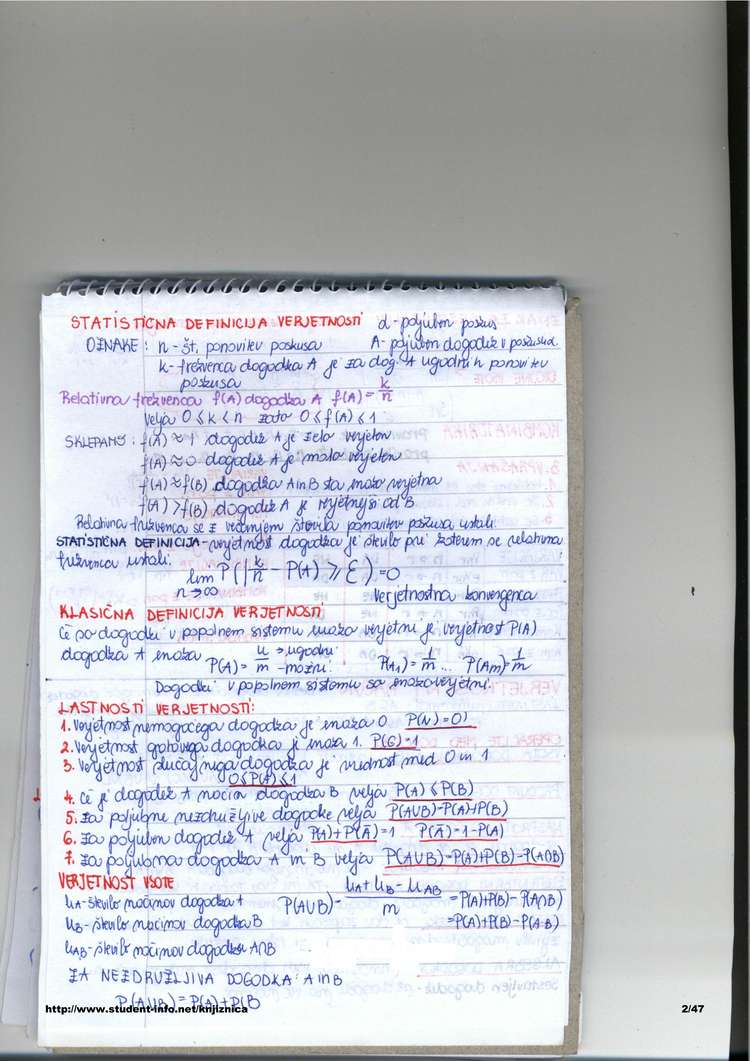 STATISTIČNA DEFINICIJA VERJETNOSTI d - poljuben poskus
OZNAKE: n - št. ponovitev poskusa A - poljuben dogodek v poskusu
k - frekvenca dogodka A je za dog. A ugodnih ponovitev
poskusa
Relativna frekvenca f(A) dogodka A f(A) = k/n
velja 0 ≤ k ≤ n zato 0 ≤ f(A) ≤ 1
SKLEPAMO: f(A) ≈ 1 dogodek A je zelo verjeten
f(A) ≈ 0 dogodek A je malo verjeten
f(A) ≈ f(B) dogodka A in B sta enako verjetna
f(A) > f(B) dogodek A je verjetnejši od B
Relativna frekvenca se z večanjem števila ponovitev poskusa ustali.
STATISTIČNA DEFINICIJA - verjetnost dogodka je število pri katerem se relativna
frekvenca ustali.
lim n→∞ P(|k/n - P(A) ≥ ε) = 0
Verjetnostna konvergenca
KLASIČNA DEFINICIJA VERJETNOSTI
Če so dogodki v popolnem sistemu enako verjetni je verjetnost P(A)
dogodka A enaka P(A) = u/m → ugodni - možni P(A1) = 1/m ... P(Am) = 1/m
Dogodki v popolnem sistemu so enakoverjetni.
LASTNOSTI VERJETNOSTI:
1. Verjetnost nemogočega dogodka je enaka 0 P(N) = 0)
2. Verjetnost gotovega dogodka je enaka 1. P(G) = 1
3. Verjetnost slučajnega dogodka je vrednost med 0 in 1
0 ≤ P(A) ≤ 1
4. Če je dogodek A način dogodka B velja P(A) ≤ P(B)
5. Za poljubne nezdružljive dogodke velja P(A∪B) = P(A)+P(B)
6. Za poljuben dogodek A velja P(A) + P(Ā) = 1 P(Ā) = 1 - P(A)
7. Za poljubna dogodka A in B velja P(A∪B) = P(A)+P(B) - P(A∩B)
VERJETNOST VSOTE
uA - število načinov dogodka A P(A∪B) = (uA + uB - uAB)/m = P(A)+P(B) - P(A∩B)
uB - število načinov dogodka B = P(A)+P(B) - P(A·B)
uAB - število načinov dogodkov A∩B
ZA NEZDRUŽLJIVA DOGODKA A in B
P(A∪B) = P(A) + P(B
http://www.student-info.net/knjiznica 2/47